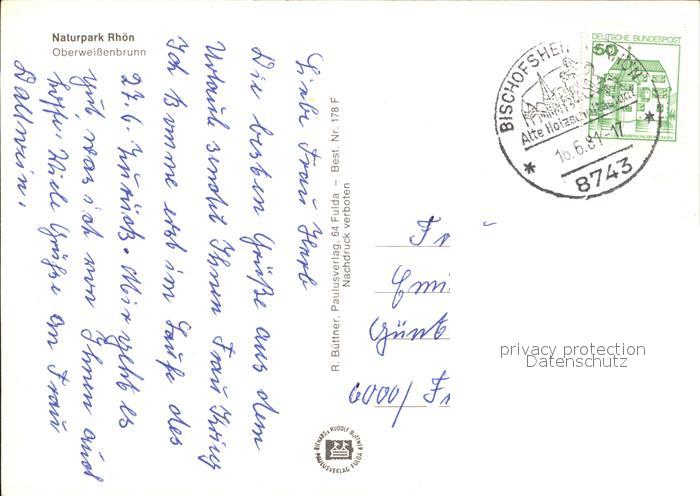 Naturpark Rhön
Oberweißenbrunn
Liebe Frau
Die besten Grüße aus dem
Urlaub sendet Ihnen Frau
Ich komme erst im Laufe des
27.6. zurück. Mir geht es
gut, was ich von Ihnen auch
hoffe. Viele Grüße an Frau
R. Büttner, Paulusverlag, 64 Fulda – Best. Nr. 178 F
Nachdruck verboten
RICHARD & RUDOLF BÜTTNER
PAULUSVERLAG FULDA
DEUTSCHE BUNDESPOST
50
BISCHOFSHEIM
Alte Holzschnitzerstadt
16.6.81-17
8743
Fr
Emi
Günt
6000/ Fr
privacy protection
Datenschutz